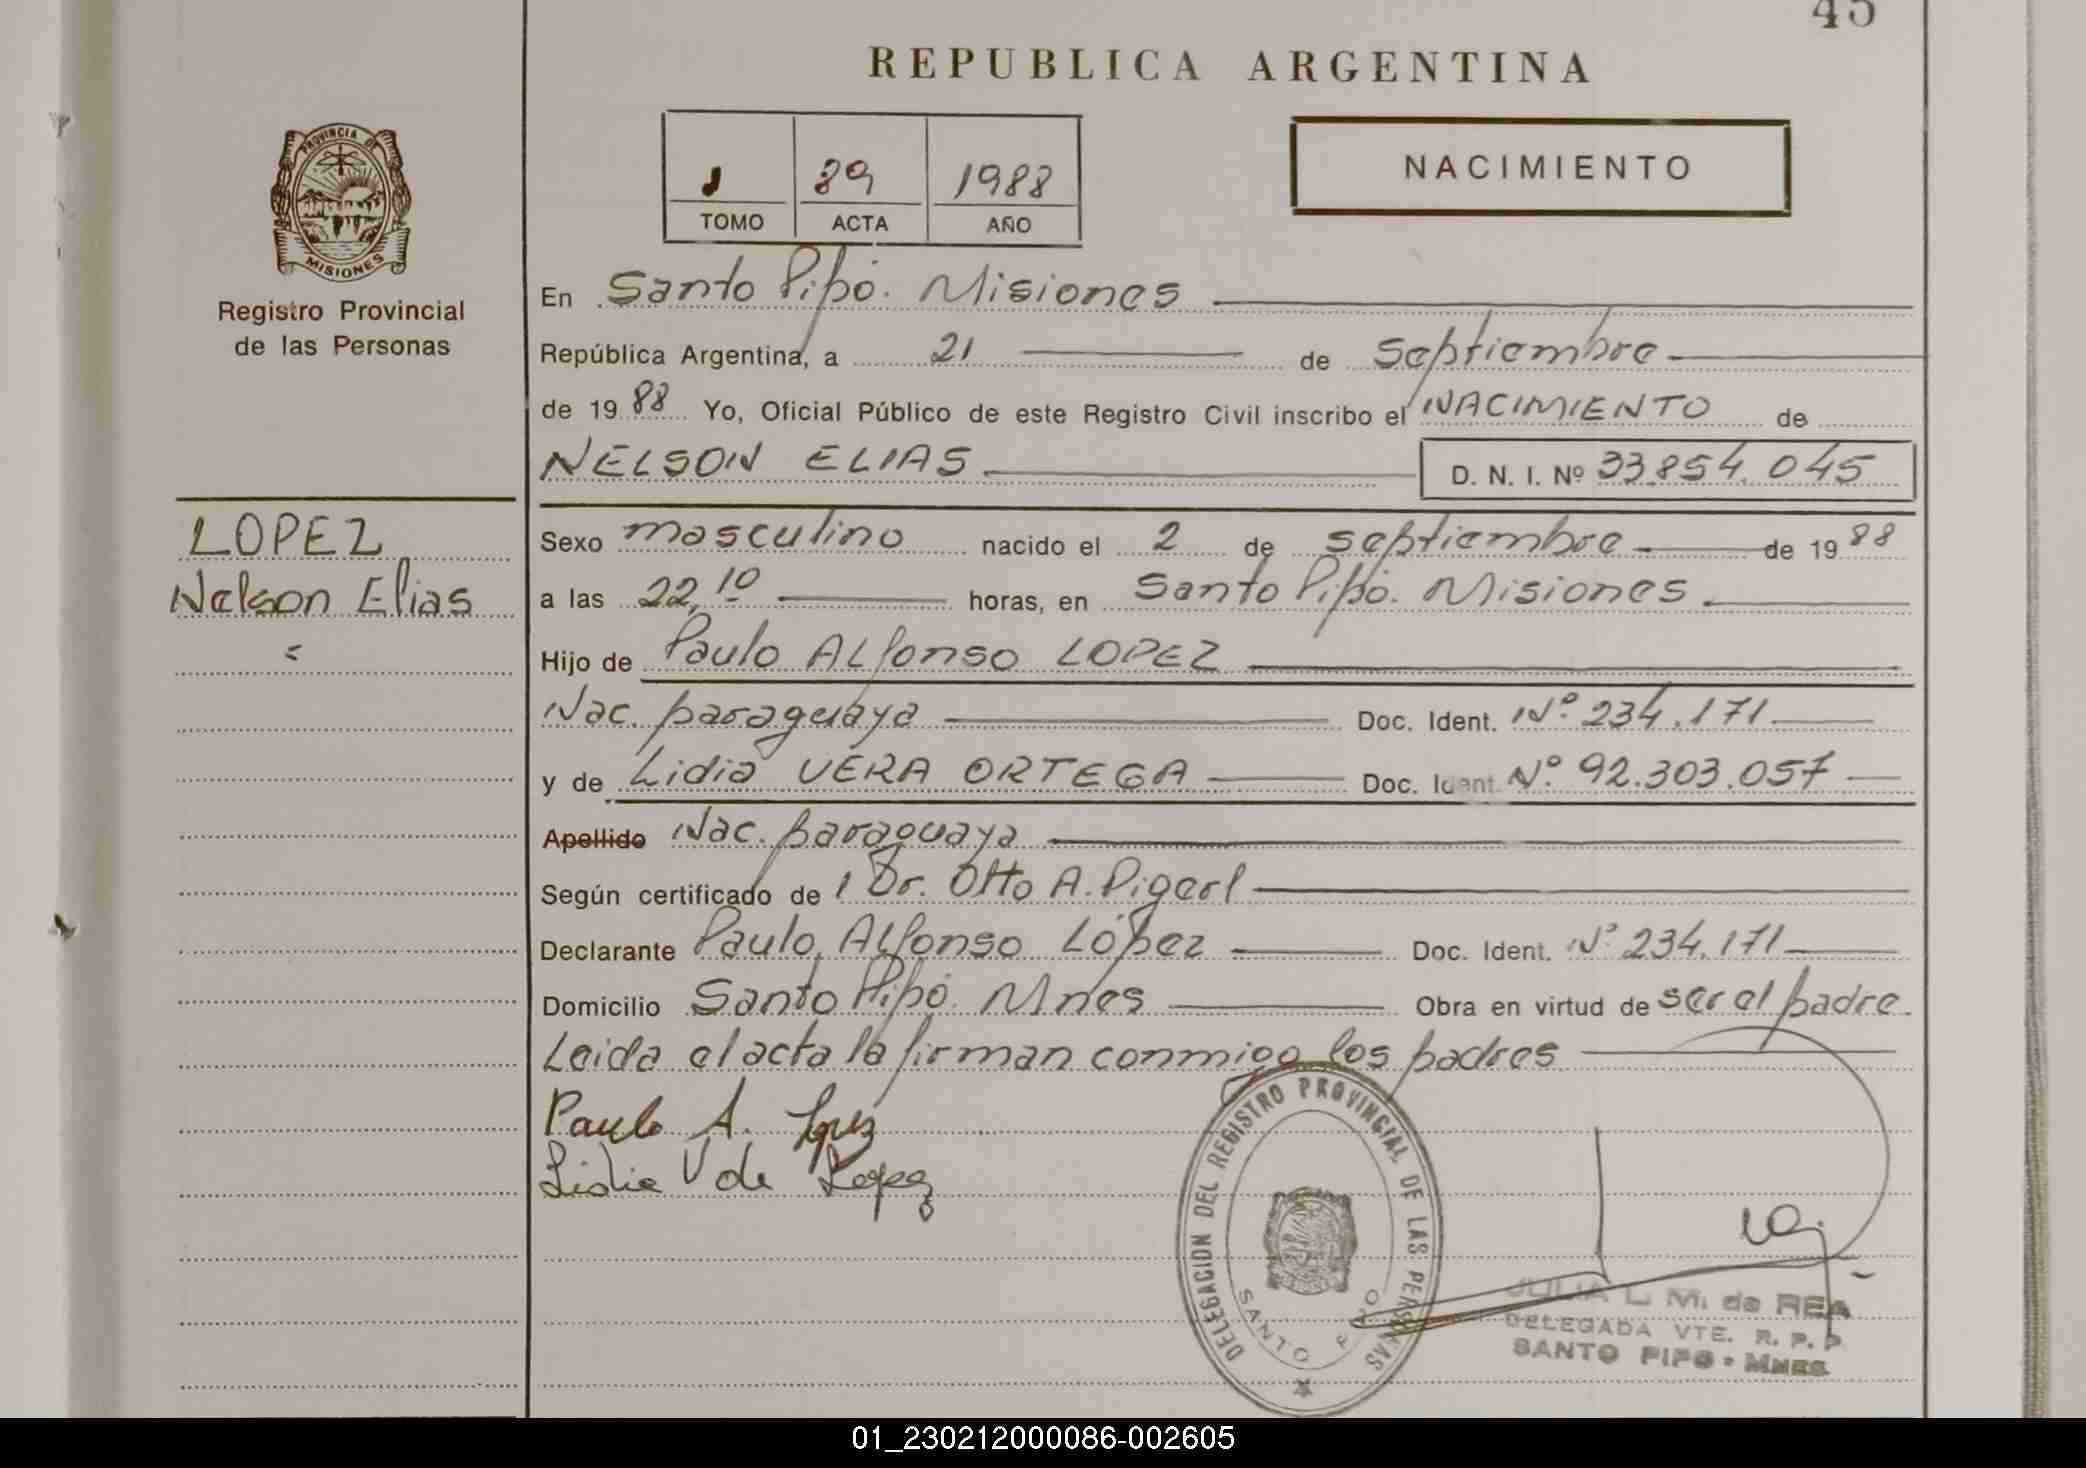 45
REPUBLICA ARGENTINA
PROVINCIA DE
MISIONES
Registro Provincial
de las Personas
89 1988
TOMO ACTA AÑO
NACIMIENTO
En Santo Pipó. Misiones
República Argentina, a 21 de septiembre
de 19 88 Yo, Oficial Público de este Registro Civil inscribo el NACIMIENTO de
NELSON ELIAS D. N. I. Nº 33.854.045
LOPEZ
Nelson Elias
Sexo masculino nacido el 2 de septiembre de 19 88
a las 22,10 horas, en Santo Pipó. Misiones
Hijo de Paulo Alfonso LOPEZ
Nac. paraguaya Doc. Ident. Nº 234.171
y de Lidia VERA ORTEGA Doc. Ident. Nº 92.303.057
Apellido Nac. paraguaya
Según certificado de Dr. Otto A. Pigerl
Declarante Paulo Alfonso López Doc. Ident. Nº 234.171
Domicilio Santo Pipó. Mnes Obra en virtud de ser el padre
Leida el acta la firman conmigo los padres
Paulo A. Lopez
Lidia V de Lopez
DELEGACION DEL REGISTRO PROVINCIAL DE LAS PERSONAS
SANTO PIPO
JULIA L. M. de REA
DELEGADA VTE. R. P. P.
SANTO PIPO - MNES.
01_230212000086-002605